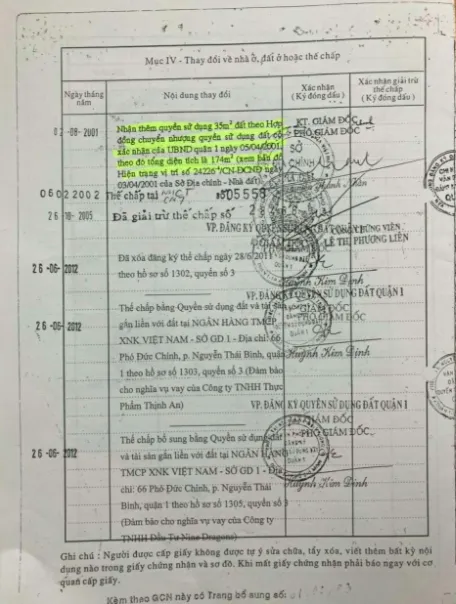 Mục IV - Thay đổi về nhà ở, đất ở hoặc thế chấp
Ngày tháng năm
Nội dung thay đổi
Xác nhận (Ký đóng dấu)
Xác nhận giải trừ thế chấp (Ký đóng dấu)
02-08-2001
Nhận thêm quyền sử dụng 35m² đất theo Hợp
đồng chuyển nhượng quyền sử dụng đất có
xác nhận của UBND quận 1 ngày 05/04/2001,
theo đó tổng diện tích là 174m² (xem bản đồ
Hiện trạng vị trí số 24226 /CN-ĐCNĐ ngày
03/04/2001 của Sở Địa chính - Nhà đất)
KT. GIÁM ĐỐC
PHÓ GIÁM ĐỐC
06 02 2002 Thế chấp tại
05558
26-10-2005 Đã giải trừ thế chấp số
VP. ĐĂNG KÝ QUYỀN SỬ DỤNG ĐẤT
LÊ THỊ PHƯƠNG LIÊN
26-06-2012
Đã xóa đăng ký thế chấp ngày 28/6/2011
theo hồ sơ số 1302, quyển số 3
Huỳnh Kim Định
VP. ĐĂNG KÝ QUYỀN SỬ DỤNG ĐẤT QUẬN 1
GIÁM ĐỐC
PHÓ GIÁM ĐỐC
26-06-2012
Thế chấp bằng Quyền sử dụng đất và tài sản
gắn liền với đất tại NGÂN HÀNG TMCP
XNK VIỆT NAM - SỞ GD 1 - Địa chỉ: 66
Phó Đức Chính, p. Nguyễn Thái Bình, quận
1 theo hồ sơ số 1303, quyển số 3 (Đảm bảo
cho nghĩa vụ vay của Công ty TNHH Thực
Phẩm Thịnh An)
Huỳnh Kim Định
VP. ĐĂNG KÝ QUYỀN SỬ DỤNG ĐẤT QUẬN 1
GIÁM ĐỐC
PHÓ GIÁM ĐỐC
26-06-2012
Thế chấp bổ sung bằng Quyền sử dụng đất
và tài sản gắn liền với đất tại NGÂN HÀNG
TMCP XNK VIỆT NAM - SỞ GD 1 - Địa
chỉ: 66 Phó Đức Chính, p. Nguyễn Thái
Bình, quận 1 theo hồ sơ số 1305, quyển số 3
(Đảm bảo cho nghĩa vụ vay của Công ty
TNHH Đầu Tư Nine Dragons)
Huỳnh Kim Định
Ghi chú : Người được cấp giấy không được tự ý sửa chữa, tẩy xóa, viết thêm bất kỳ nội
dung nào trong giấy chứng nhận và sơ đồ. Khi mất giấy chứng nhận phải báo ngay với cơ
quan cấp giấy.
Kèm theo GCN này có Trang bổ sung số: